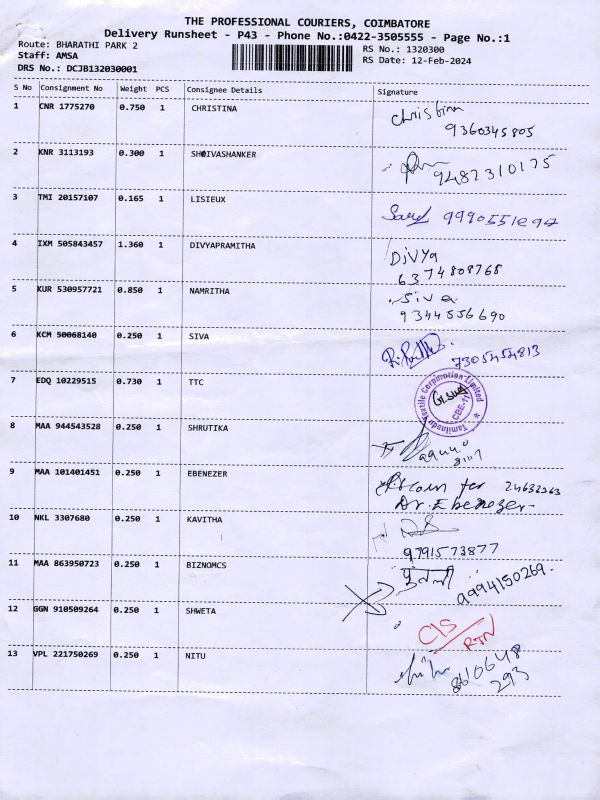 THE PROFESSIONAL COURIERS, COIMBATORE
Delivery Runsheet - P43 - Phone No.:0422-3505555 - Page No.:1
Route: BHARATHI PARK 2
RS No.: 1320300
Staff: AMSA
RS Date: 12-Feb-2024
DRS No.: DCJB132030001
S No Consignment No Weight PCS Consignee Details Signature
1 CNR 1775270 0.750 1 CHRISTINA Christina
9360345805
2 KNR 3113193 0.300 1 SHOIVASHANKER
9487310175
3 TMI 20157107 0.165 1 LISIEUX
4 IXM 505843457 1.360 1 DIVYAPRAMITHA Divya
6374808768
5 KUR 530957721 0.850 1 NAMRITHA Siva
9344556690
6 KCM 50068140 0.250 1 SIVA
7305454813
7 EDQ 10229515 0.730 1 TTC
Tamilnadu Textile Corporation Limited
CBE-11
8 MAA 944543528 0.250 1 SHRUTIKA
9 MAA 101401451 0.250 1 EBENEZER for
Dr. Ebenezer
10 NKL 3307680 0.250 1 KAVITHA
9791573877
11 MAA 863950723 0.250 1 BIZNOMCS
9994150269.
12 GGN 910509264 0.250 1 SHWETA C/S
RTN
13 VPL 221750269 0.250 1 NITU
8610648
293